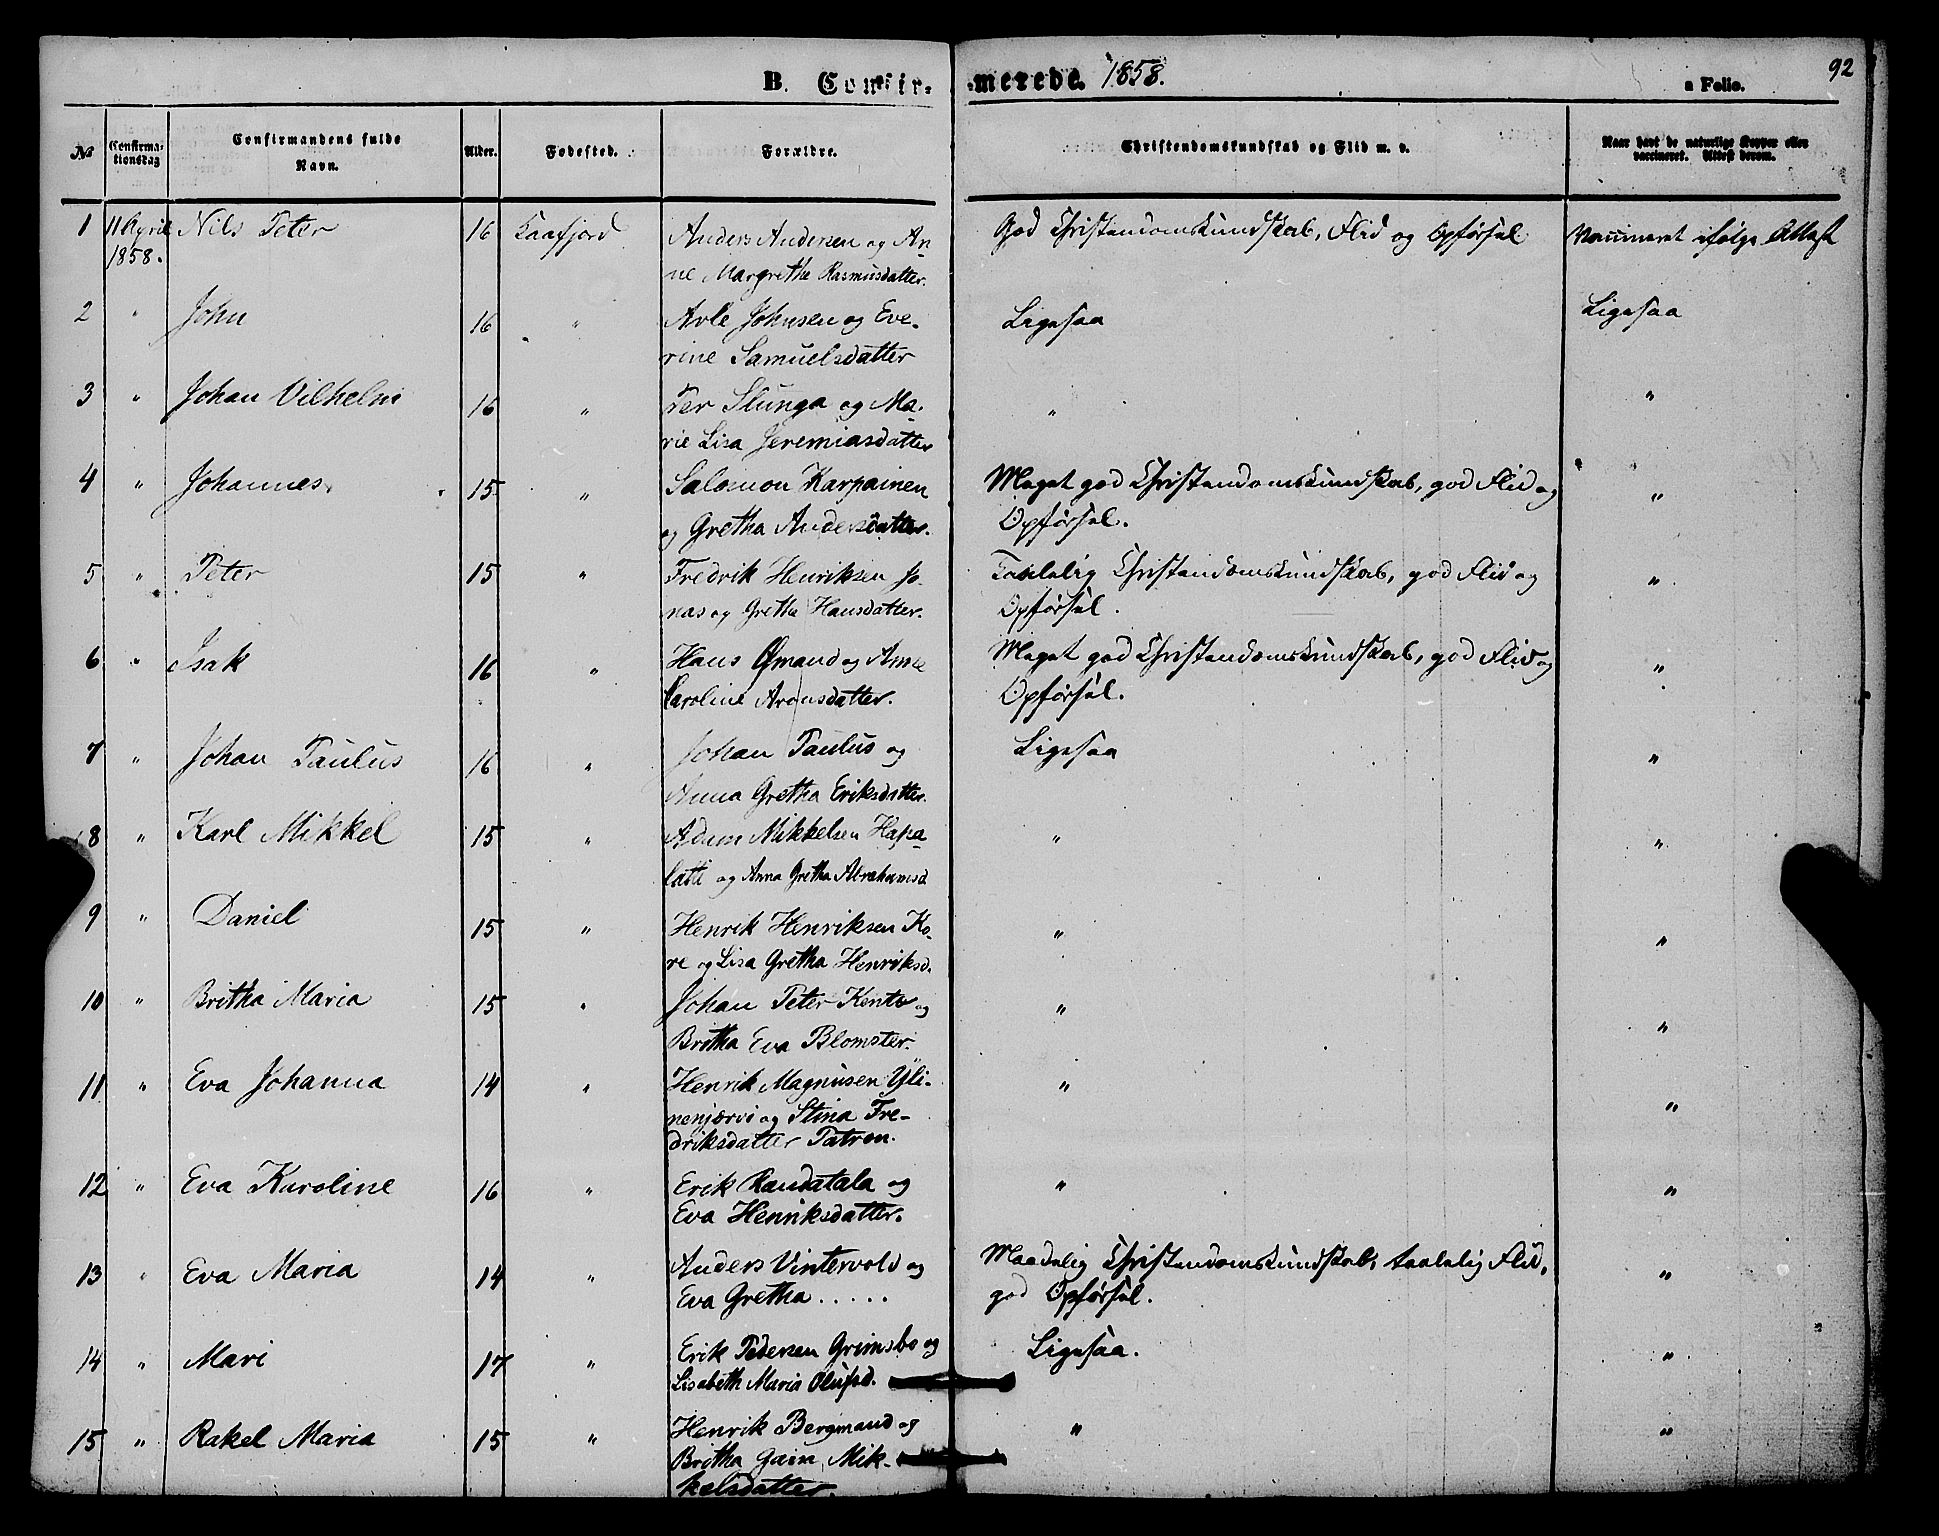 B. Confir- merede. 1858.
92
a Folio.
No
Confirma-
tionsdag
Confirmandens fulde
Navn.
Alder.
Fødested.
Forældre.
Christendomskundskab og Flid m. v.
Naar havt de naturlige Kopper eller
vaccineret. Attest derom.
1 11 April Nils Peter 16 Kaafjord Anders Andersen og An- God Christendomskundskab, Flid og Opførsel Vaccineret ifølge Attest
1858. ne Margretha Rasmusdatter.
2 " John 16 " Arle Johnsen og Eve- Ligesaa Ligesaa
rine Samuelsdatter
3 " Johan Vilhelm 16 " Per Slunga og Ma- " "
rie Lisa Jeremiasdatter
4 " Johannes. 15 " Salomon Karpainen Meget god Christendomskundskab, god Flid og "
og Gretha Andersdatter. Opførsel.
5 " Peter 15 " Fredrik Henriksen Jo- Taalelig Christendomskundskab, god Flid og "
nas og Gretha Hansdatter. Opførsel.
6 " Isak 16 " Hans Qmand og Anne Meget god Christendomskundskab, god Flid og "
Caroline Aronsdatter. Opførsel.
7 " Johan Paulus 16 " Johan Paulus og Ligesaa "
Anna Gretha Eriksdatter.
8 " Karl Mikkel 15 " Adam Mikkelsen Hapa- " "
latti og Anna Gretha Abrahamsd.
9 " Daniel 15 " Henrik Henriksen Ko- " "
re og Lisa Gretha Henriksd.
10 " Britha Maria 15 " Johan Peter Kento og " "
Britha Eva Blomster.
11 " Eva Johanna 14 " Henrik Magnusen Yli- " "
nenjærvi og Stina Fre-
driksdatter Patron.
12 " Eva Karoline 16 " Erik Raudatala og " "
Eva Henriksdatter.
13 " Eva Maria 14 " Anders Vintervold og Maadelig Christendomskundskab, taalelig Flid, "
Eva Gretha ..... god Opførsel.
14 " Mari 17 " Erik Pedersen Grimsbo og Ligesaa. "
Lisabeth Maria Olufsd.
15 " Rakel Maria 15 " Henrik Bergmand og " "
Britha Gain Mik-
kelsdatter.